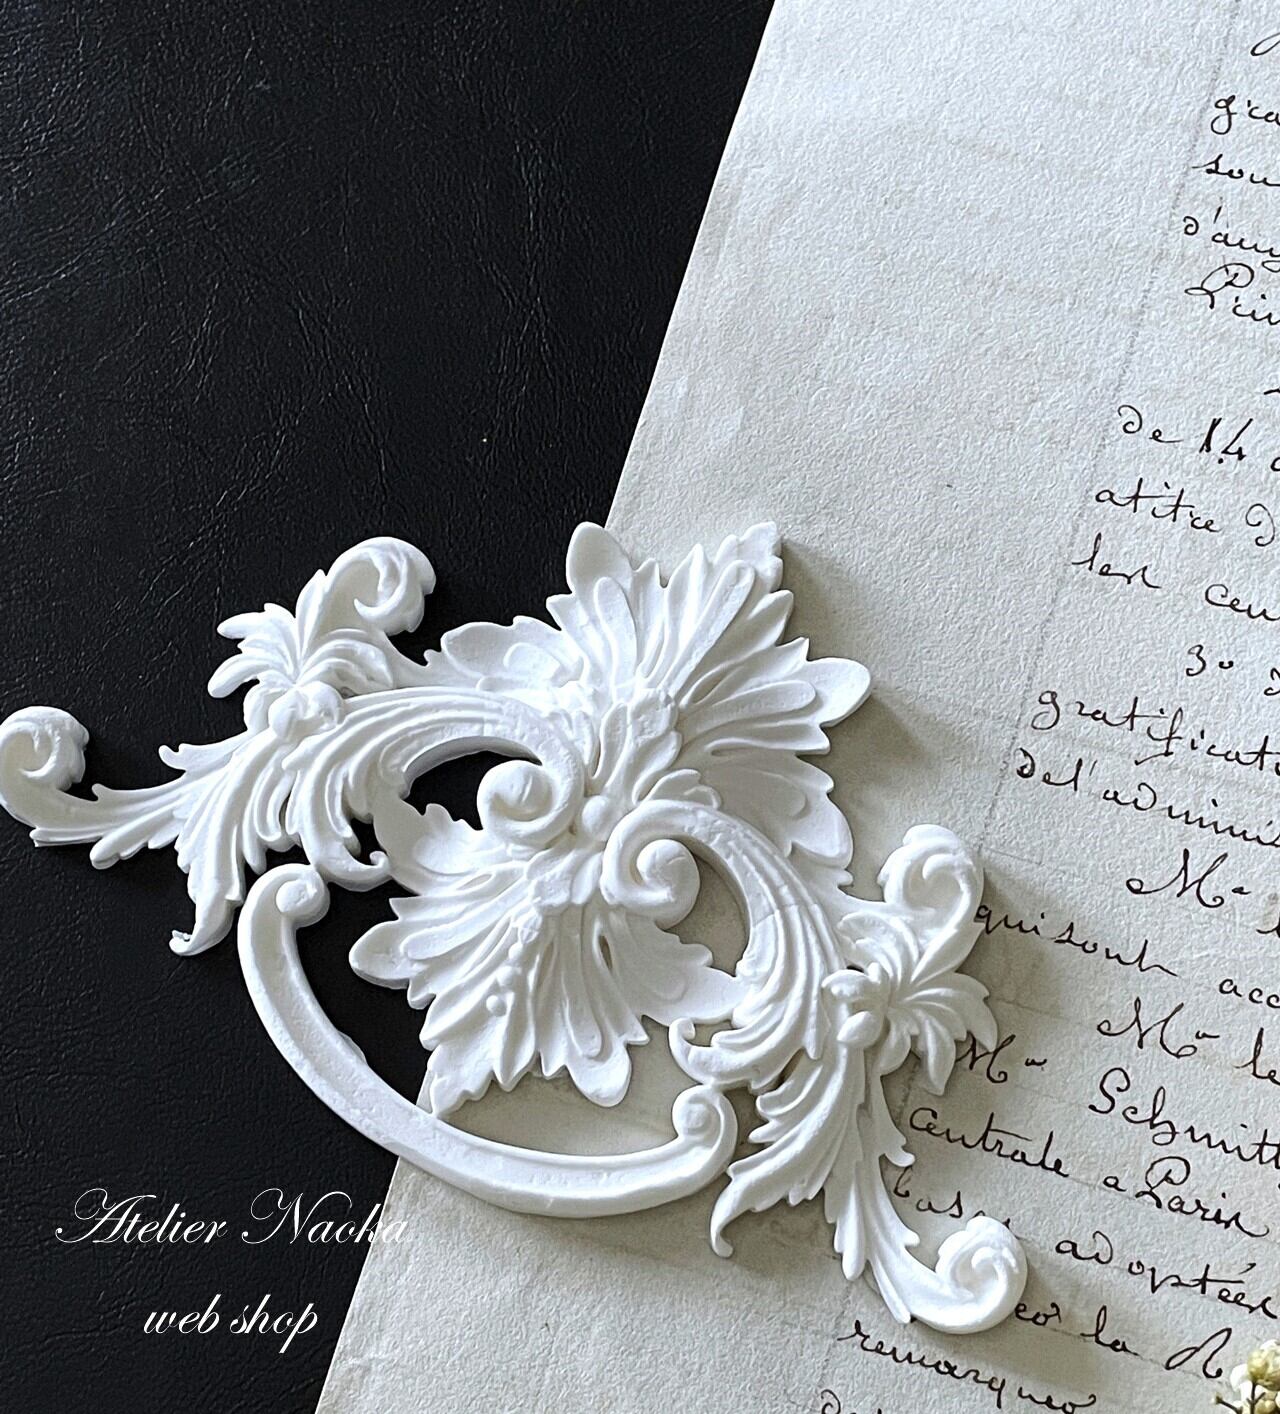 sou
de 14
atitre
les cen
3o
gratificati
del'admini
Ma
qui sont acc
Ma le
Ma Schmitt
Centrale a Paris
bas adoptées
la R
remarques
Atelier Naoka
web shop